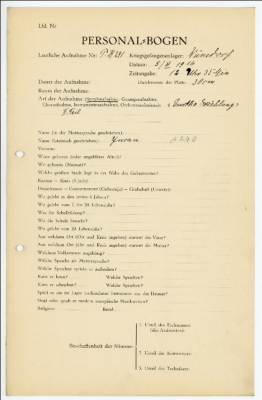 Lfd. Nr.
PERSONAL-BOGEN
Lautliche Aufnahme Nr.: PK 281 Kriegsgefangenenlager: Wünsdorf
Datum: 5/II 1916
Zeitangabe: 12 Uhr 35 Min
Dauer der Aufnahme: Durchmesser der Platte: 30 cm
Raum der Aufnahme:
Art der Aufnahme (Sprechaufnahme, Gesangsaufnahme,
Choraufnahme, Instrumentenaufnahme, Orchesteraufnahme):
Name (in der Muttersprache geschrieben):
Name (lateinisch geschrieben):
Vorname:
Wann geboren (oder ungefähres Alter)?
Wo geboren (Heimat)?
Welche größere Stadt liegt in der Nähe des Geburtsortes?
Kanton — Kreis (Ujezd):
Departement — Gouvernement (Gubernija) — Grafschaft (County):
Wo gelebt in den ersten 6 Jahren?
Wo gelebt vom 7. bis 20. Lebensjahr?
Was für Schulbildung?
Wo die Schule besucht?
Wo gelebt vom 20. Lebensjahr?
Aus welchem Ort (Ort und Kreis angeben) stammt der Vater?
Aus welchem Ort (Ort und Kreis angeben) stammt die Mutter?
Welchem Volksstamm angehörig?
Welche Sprache als Muttersprache?
Welche Sprachen spricht er außerdem?
Kann er lesen? Welche Sprachen?
Kann er schreiben? Welche Sprachen?
Spielt er ein im Lager vorhandenes Instrument aus der Heimat?
Singt oder spielt er modern europäische Musikweisen?
Religion: Beruf:
Beschaffenheit der Stimme:
1. Urteil des Fachmannes
(des Assistenten):
2. Urteil des Kommissars:
3. Urteil des Technikers: